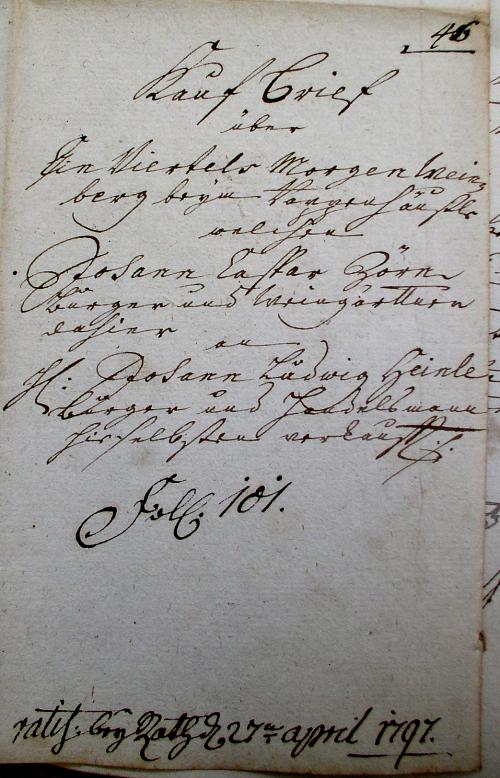 46
Kauf Brief
über
Ein Viertels Morgen Wein-
berg beym Pappenhäußle
welchen
Johann Caspar Zörn
Bürger und Weingärttner
dahier
an
H: Johann Ludwig Heinle
Bürger und Handelsmann
hieselbsten verkaufft
Foll. 101.
ratif. bey Rath d. 27ten april 1797.